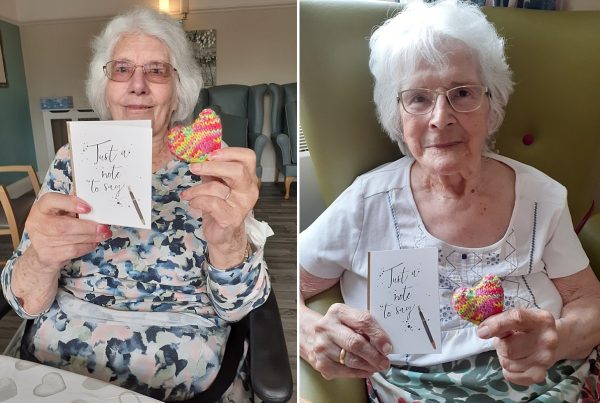 Just a
note
to say
Just a
note
to say